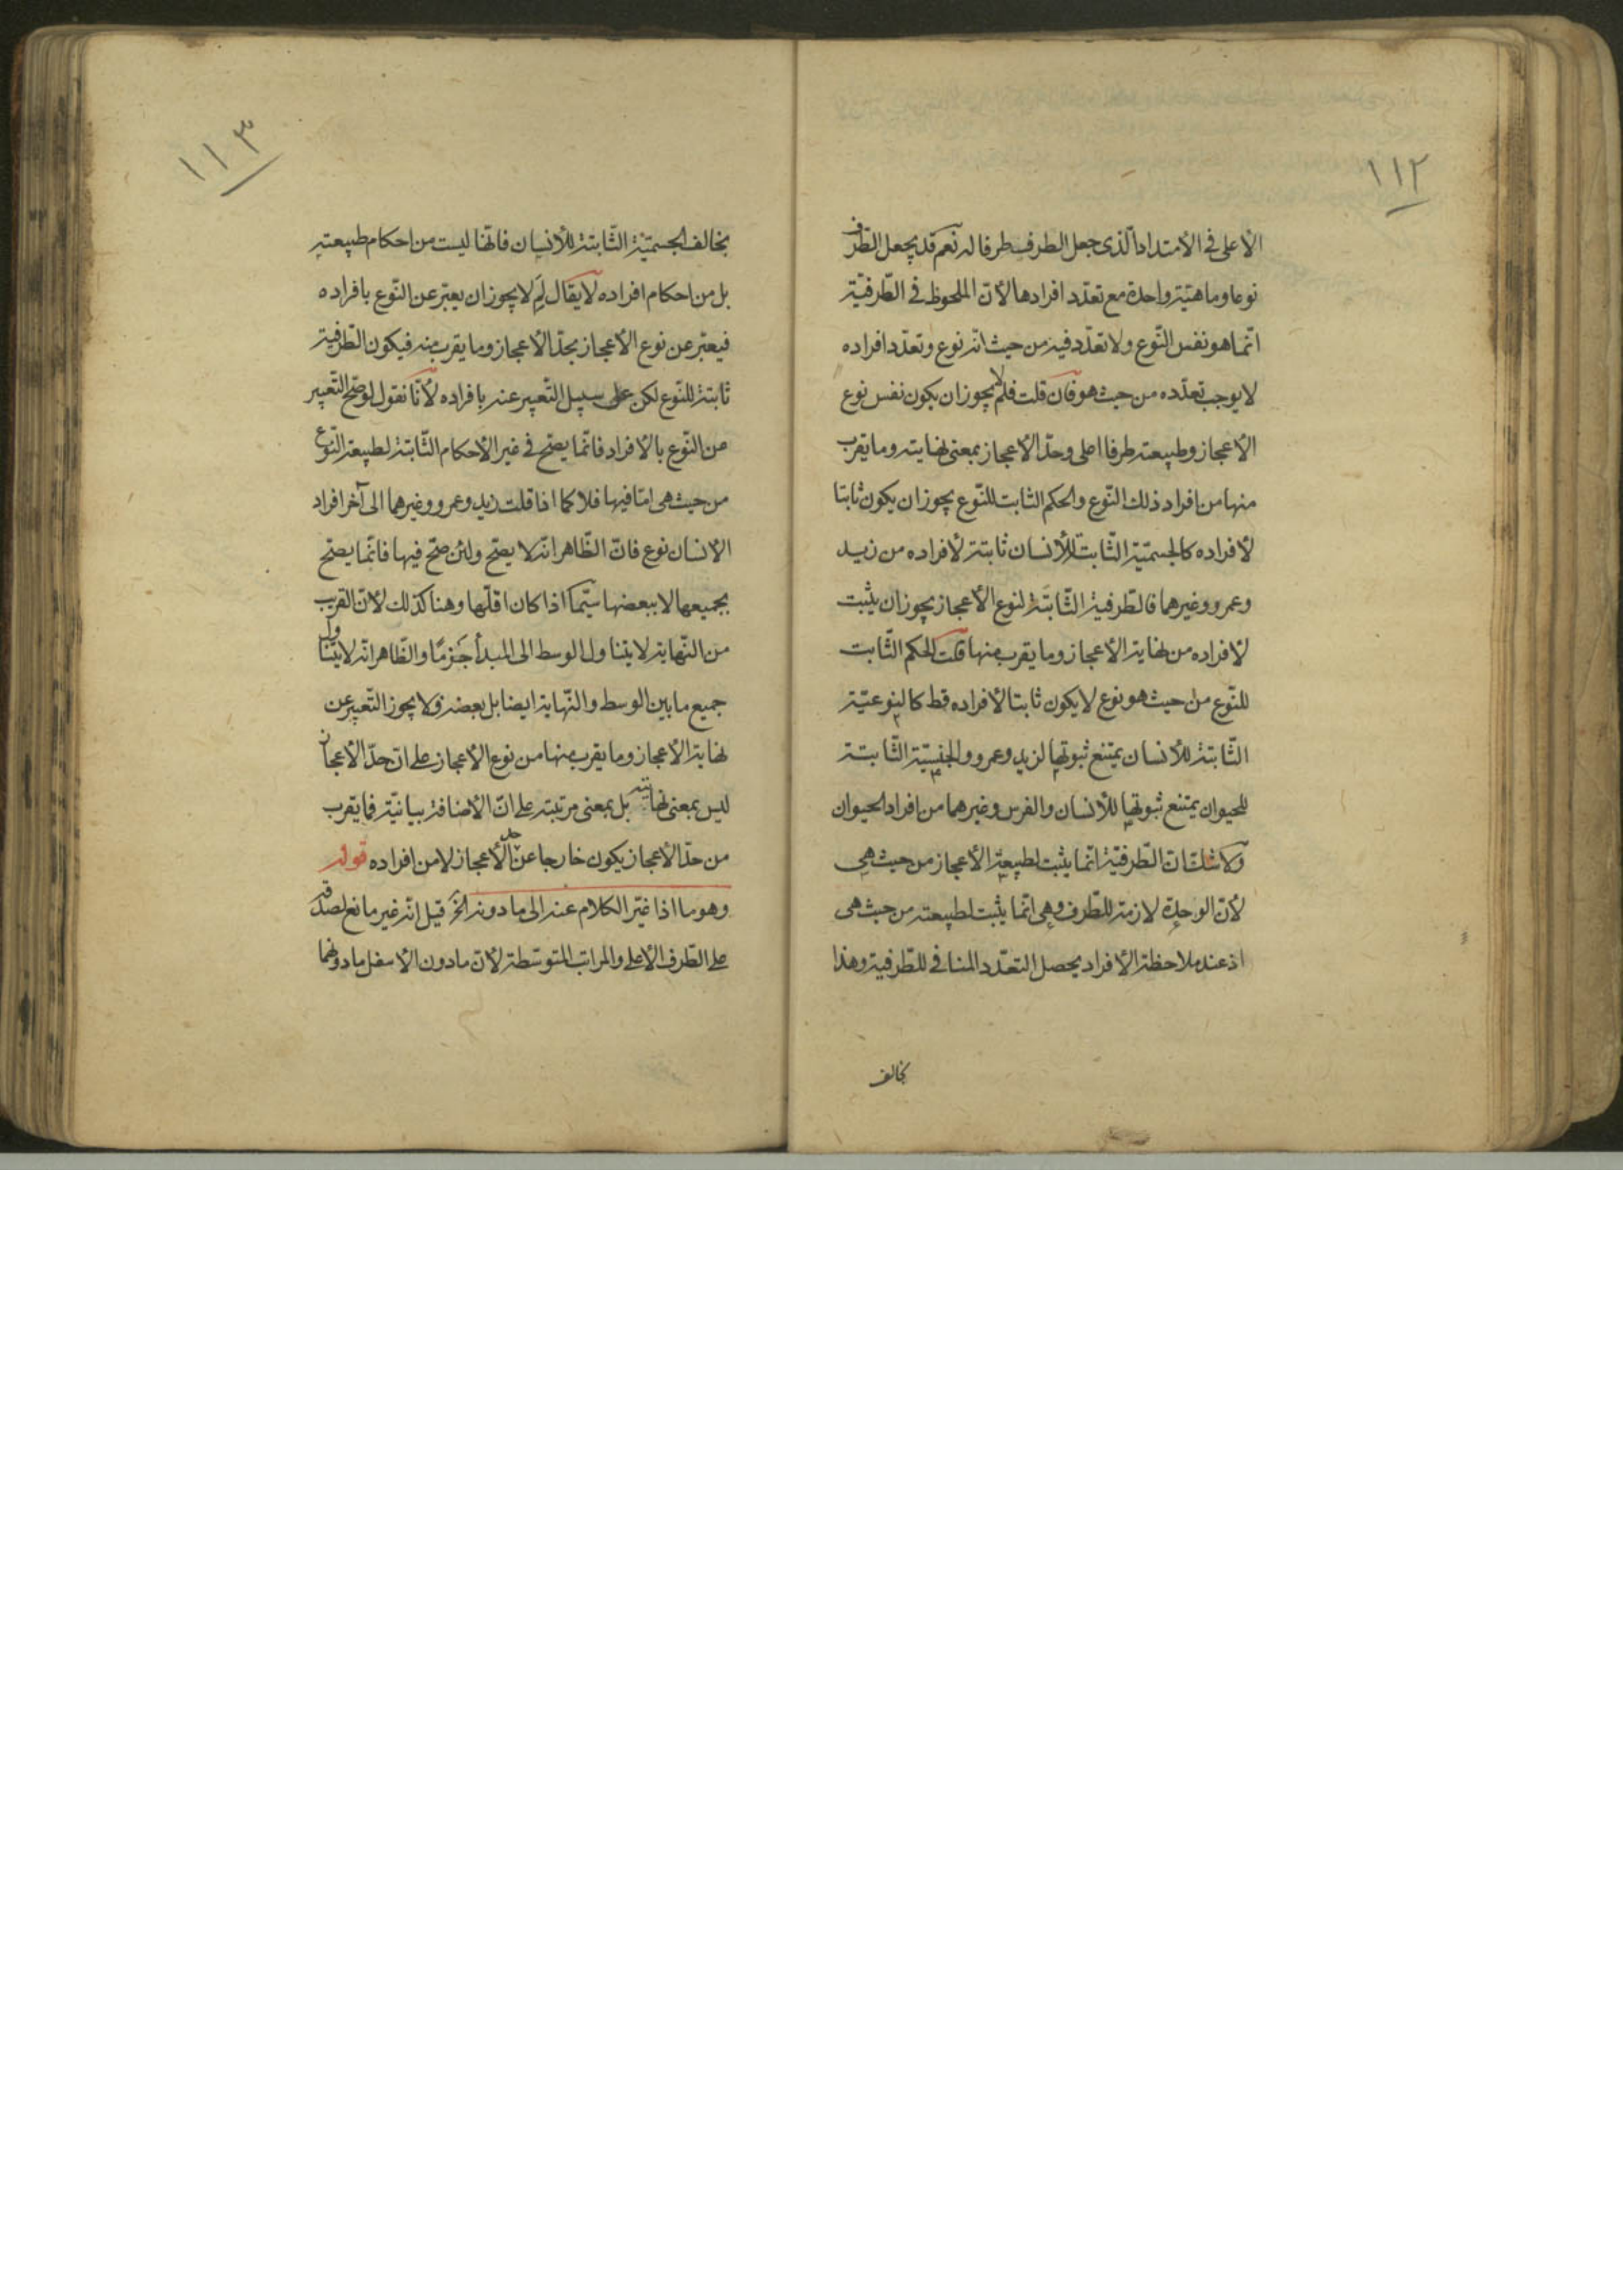 ١١٢
الأعلى في الأمتداد الّذى جعل الطرف طرفا له نعم قد يجعل الطّرف
نوعا وماهيّة واحدة مع تعدّد افرادها لأنّ الملحوظ في الطّرفيّة
انّما هو نفس النّوع ولا تعدّد فيه من حيث انّه نوع وتعدّد افراده
لا يوجب تعدّده من حيث هو فان قلت فلم لا يجوز ان يكون نفس نوع
الأعجاز وطبيعته طرفا اعلى وحدّ الأعجاز بمعنى نهايته وما يقرب
منها من افراد ذلك النّوع والحكم الثابت للنّوع يجوز ان يكون ثابتا
لأفراده كالجسميّة الثّابتة للأنسان ثابتة لأفراده من زيد
وعمرو وغيرهما فالطّرفية الثّابتة لنوع الأعجاز يجوز ان يثبت
لأفراده من نهاية الأعجاز وما يقرب منها قلت الحكم الثّابت
للنّوع من حيث هو نوع لا يكون ثابتا لأفراده قط كالنوعيّة
الثّابتة للأنسان يمتنع ثبوتها لزيد وعمرو والجنسيّة الثّابتة
للحيوان يمتنع ثبوتها للأنسان والفرس وغيرهما من افراد الحيوان
ولا شك انّ الطّرفيّة انّما يثبت لطبيعة الأعجاز من حيث هي
لأنّ الوحدة لازمة للطّرف وهي انّما يثبت لطبيعته من حيث هي
اذ عند ملاحظة الأفراد يحصل التعدّد المنافي للطّرفية وهذا
يخالف
١١٣
يخالف الجسميّة الثّابتة للأنسان فانّها ليست من احكام طبيعته
بل من احكام افراده لا يقال لِمَ لا يجوز ان يعبّر عن النّوع بافراده
فيعبّر عن نوع الأعجاز بحدّ الأعجاز وما يقرب منه فيكون الطّرفية
ثابتة للنّوع لكن على سبيل التّعبير عنه بافراده لأنّا نقول لو صّح التّعبير
عن النّوع بالأفراد فانّما يصّح في غير الأحكام الثّابتة لطبيعة النّوع
من حيث هي امّا فيها فلا كما اذا قلت زيد وعمرو وغيرهما الى آخر افراد
الأنسان نوع فانّ الظّاهر انّه لا يصّح ولئن صّح فيها فانّما يصّح
بجميعها لا ببعضها سيّما اذا كان اقلّها وهنا كذلك لأنّ القريب
من النّهاية لا يتناول الوسط الى المبدأ جَزمًا والظّاهر انّه لا يتناول
جميع ما بين الوسط والنّهاية ايضا بل بعضه ولا يجوز التّعبير عن
نهاية الأعجاز وما يقرب منها من نوع الأعجاز على انّ حدّ الأعجاز
ليس بمعنى نهايته بل بمعنى مرتبته على انّ الأضافة بيانيّة فما يقرب
من حدّ الأعجاز يكون خارجا عن حد الأعجاز لا من افراده قوله
وهو ما اذا غيّر الكلام عنه الى ما دونه الخ قيل انّه غير مانع لصدقه
على الطّرف الأعلى والمراتب المتوسّطة لأنّ ما دون الأسفل ما دونهما